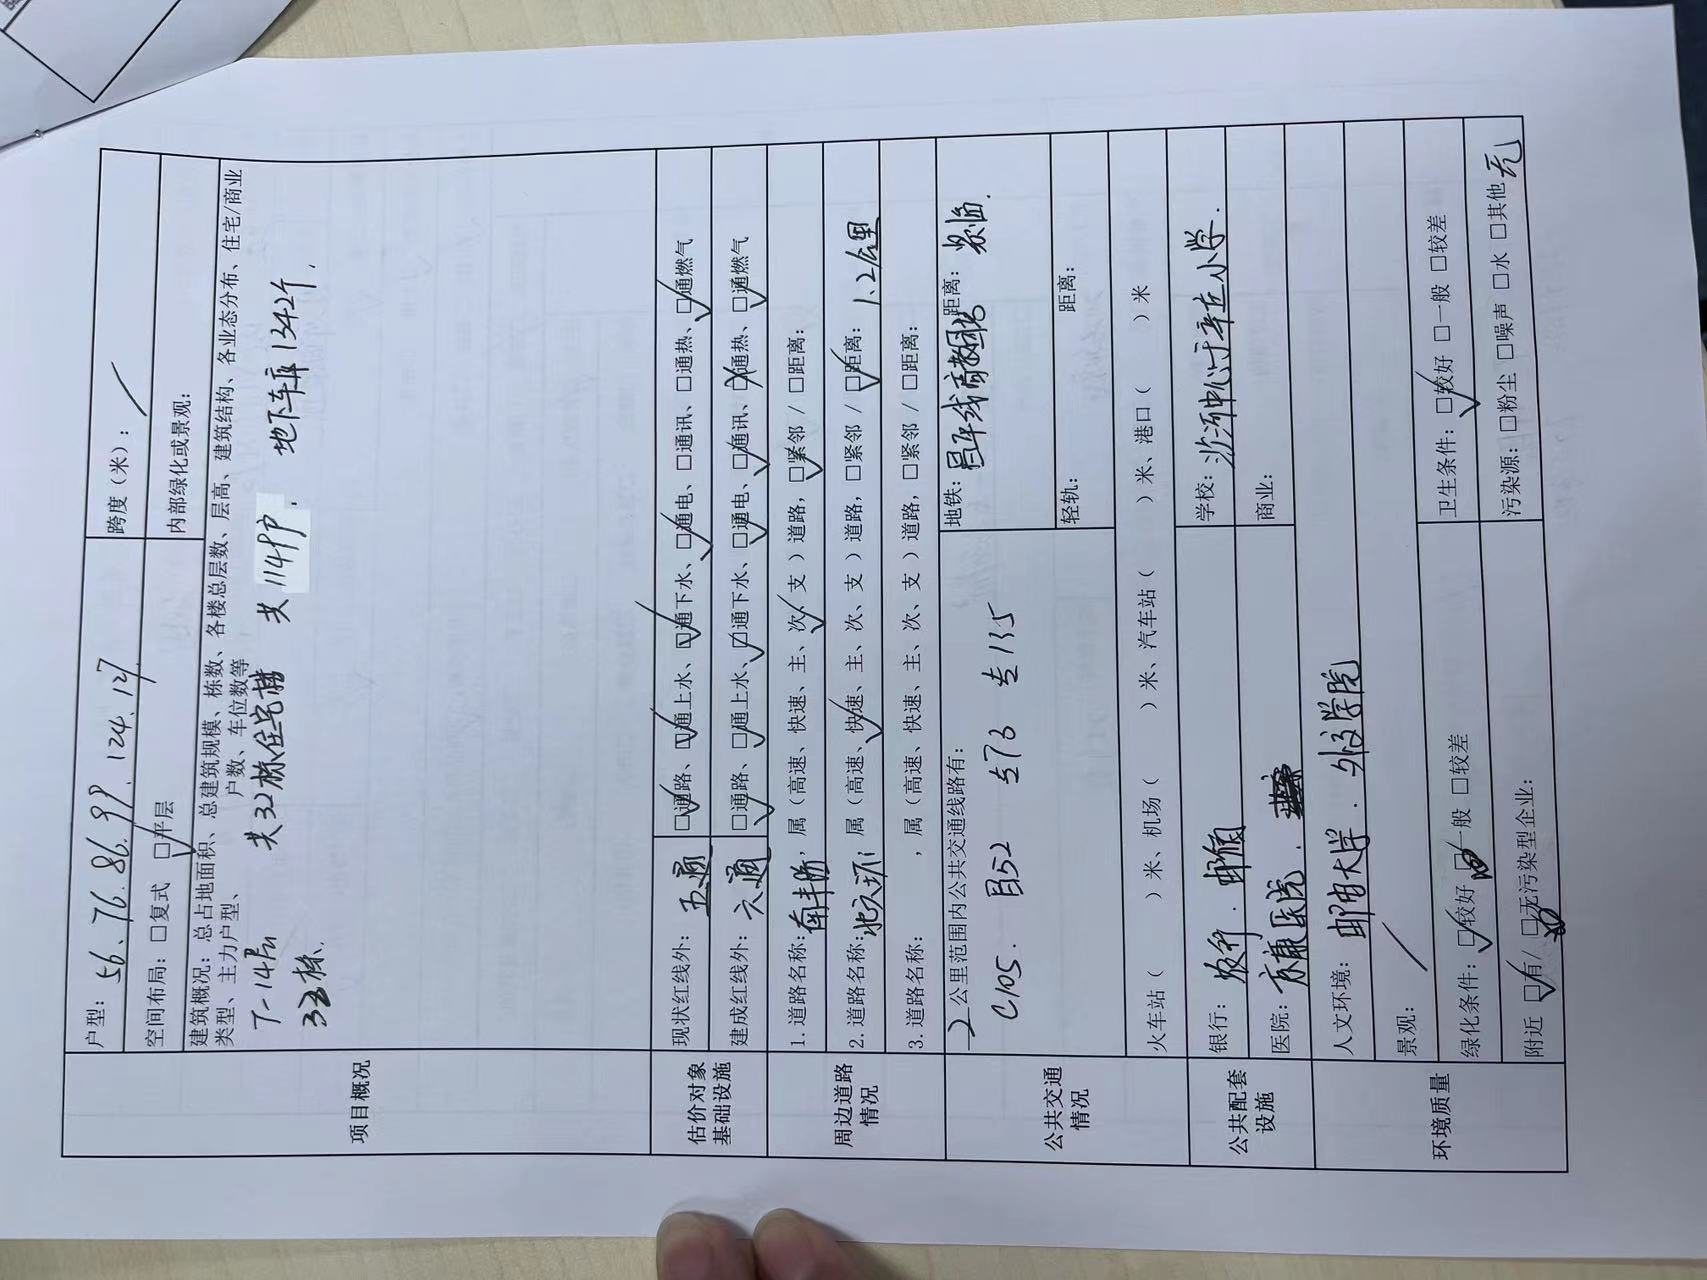 户型：56.76.86.99.124.127 跨度（米）：/
空间布局：□复式 ☑平层 内部绿化或景观：
项目概况
建筑概况：总占地面积、总建筑规模、栋数、各楼总层数、层高、建筑结构、各业态分布、住宅/商业
类型、主力户型、户数、车位数等
7-14层 共32栋住宅楼 共114户. 地下车库1342个.
估价对象
基础设施
现状红线外：五通 ☑通路、☑通上水、☑通下水、☑通电、□通讯、□通热、☑通燃气
建成红线外：六通 ☑通路、☑通上水、☑通下水、☑通电、☑通讯、☒通热、☑通燃气
周边道路
情况
1.道路名称：南丰路，属（高速、快速、主、次、支）道路，☑紧邻/□距离：
2.道路名称：北六环，属（高速、快速、主、次、支）道路，□紧邻/☑距离：1.2公里
3.道路名称： ，属（高速、快速、主、次、支）道路，□紧邻/□距离：
公共交通
情况
2公里范围内公共交通线路有： 地铁：昌平线高教园站 距离：紧临.
C105. 专73 专135
轻轨： 距离：
火车站（ ）米、机场（ ）米、汽车站（ ）米、港口（ ）米
公共配套
设施
银行：农行.邮储 学校：沙河中心小学
医院：京康医院. 商业：
环境质量
人文环境：邮电大学.外交学院
景观：/
绿化条件：☑较好 □一般 □较差 卫生条件：☑较好 □一般 □较差
附近 ☑有/□无污染型企业： 污染源：□粉尘 □噪声 □水 □其他 无